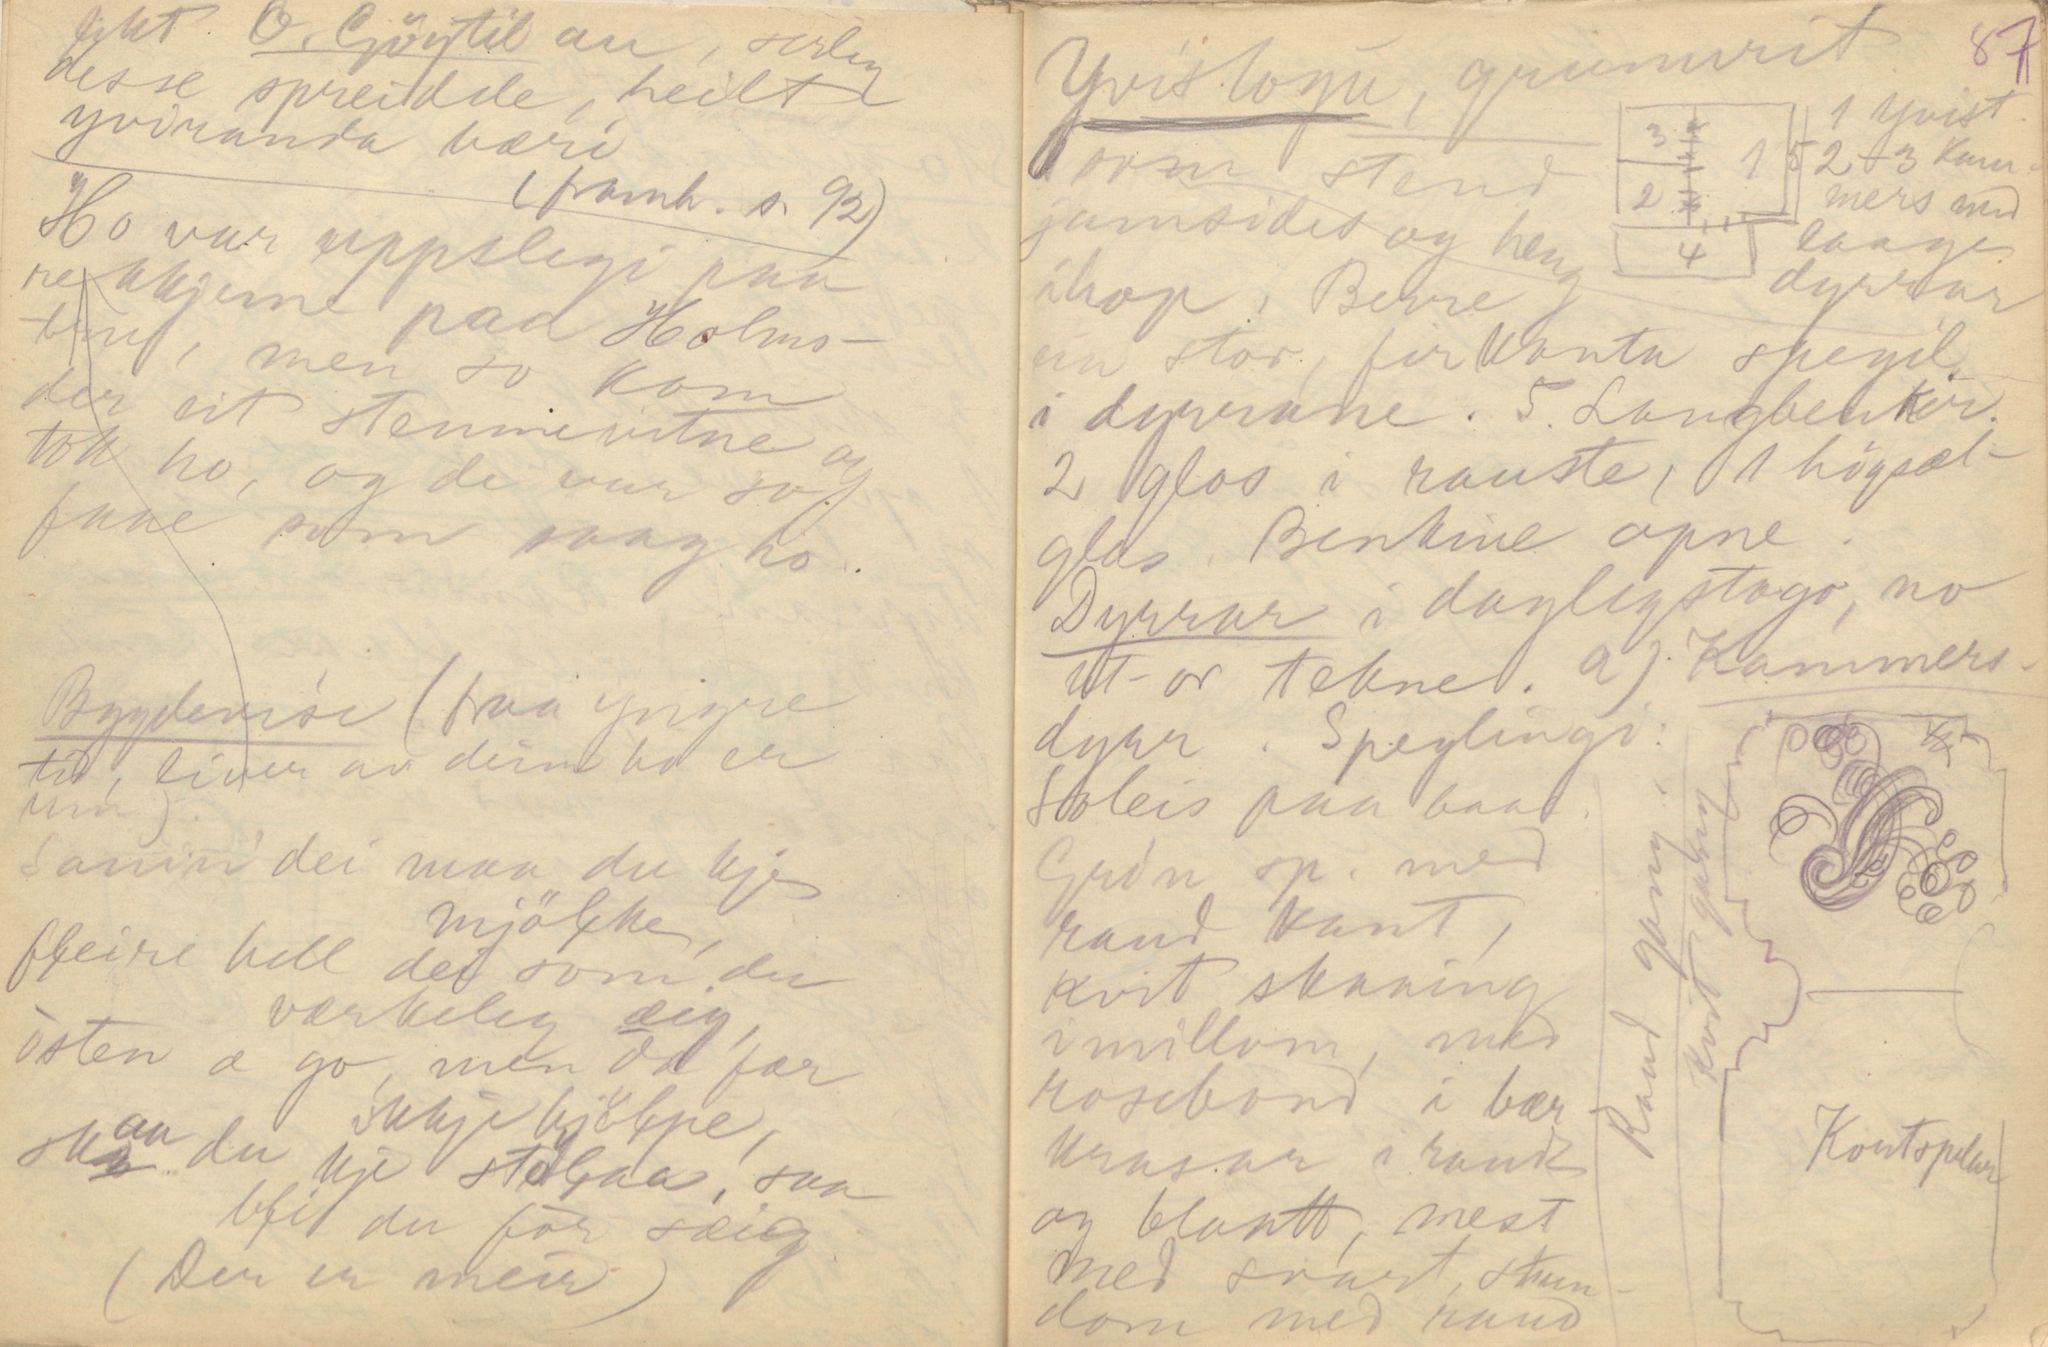 likt O. Gjöytil au, serleg
desse spreidde, heilt
yviranda bæri
(framh. s. 92)
Ho var uppslegi paa
rekkjerne paa Holms-
men so kom
der eit stemnevitne og
tok ho, og de var so
faae som saag ho.
Bygdevise (fraa yngre
tid, liver av deim ho er
um).
Samin' dei maa du kje
mjölke,
fleire hell dei som du
værkeleg æig,
östen æ go, men dæ fær
ikkje hjölpe,
skaa du kje stölaas, saa
bli du för sæig
(Der er meir)
87
Yvistogu, grunnrit
som stend
jamsides og heng
ihop. Berre
ein stor, firkanta spegil
i dyrrane. 5. Langbenkir.
2 glas i rauste, 1 högsæt-
glas. Benkine opne.
Dyrrar i daglegstogo, no
ut-or tekne. a) Kammers-
dyrr. Speglingi:
Soleis paa baae.
Grön sp. med
raud kant,
kvit skaaing
imillom, med
rosebord i bær
krasar i raudt
og blaatt, mest
med svart, stun-
dom med raud
3 2 1 5 4
1 Yvist.
2-3 Kam-
mers med
laage
dyrrar
Raud gang.
Kvit gang
Kontspelar